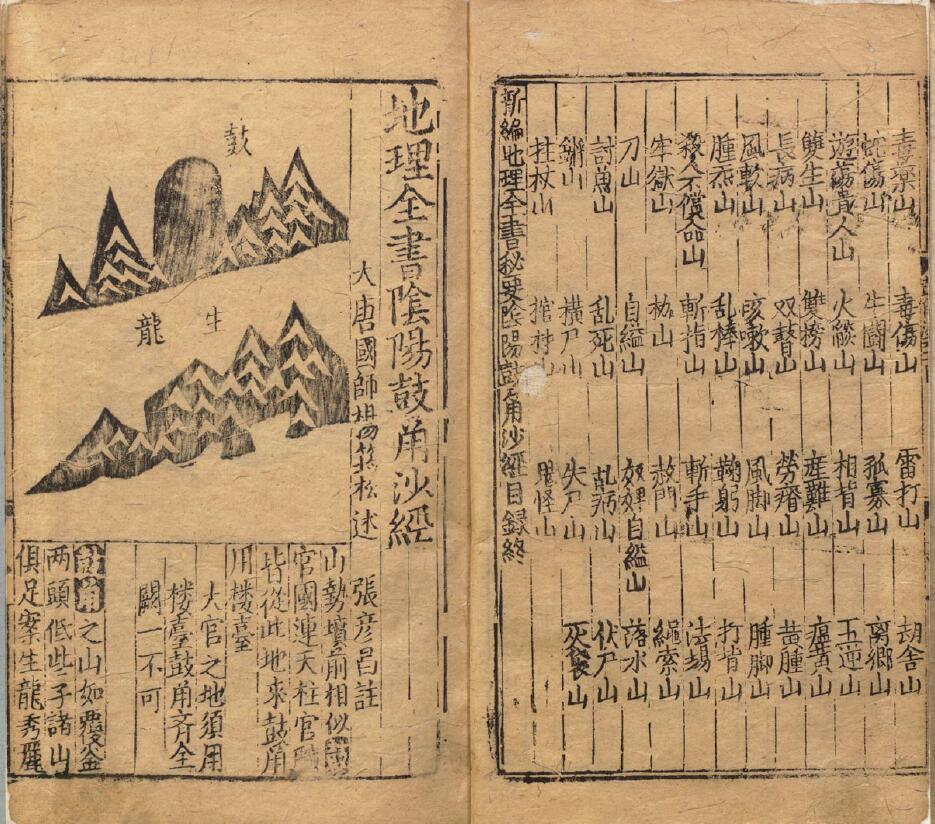 毒藥山 毒傷山 雷打山 刼舍山
蛇傷山 牛鬪山 孤寡山 离郷山
遊蕩貴人山 火燄山 相背山 五逆山
雙生山 雙山 產難山 瘟山
長病山 双瞽山 勞瘵山 黄腫山
風軟山 咳嗽山 風脚山 腫脚山
腫山 乱棒山 鞠躬山 打背山
殺人不償命山 斬指山 斬手山 法場山
牢獄山 枷山 赦門山 繩索山
刀山 自縊山 奴婢自縊山 落水山
討山 乱死山 乱病山 伏尸山
山 横尸山 失尸山 灰袋山
拄杖山 棺材山 鬼怪山
新編地理全書秘要陰陽鼓角沙經目録終
地理全書陰陽鼓角沙經
大唐國師楊筠松述
鼓
生龍
張彦昌註
山勢墳前相似
官國連天柱官職
皆從此地來鼓角
用楼臺
大官之地須用
楼臺鼓角齐全
闕一不可
鼓角之山如覆釜
两頭低此子諸山
俱足案生龍秀麗